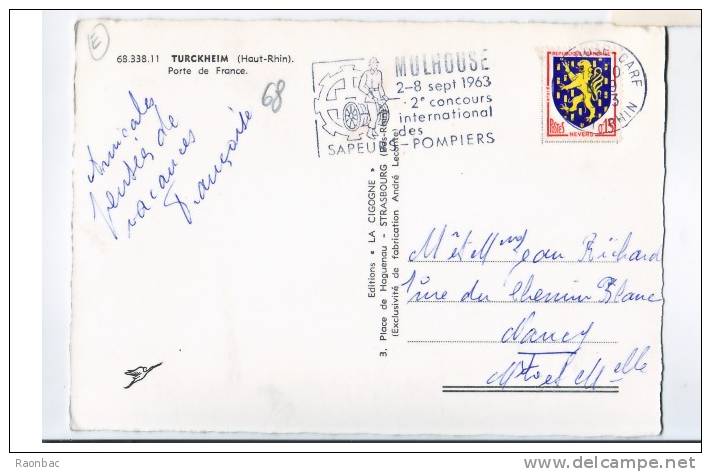 E
68.338.11 TURCKHEIM (Haut-Rhin).
Porte de France.
68
Amicales
pensées de
vacances
Françoise
MULHOUSE
2-8 sept 1963
2e concours
international
des
SAPEURS-POMPIERS
REPUBLIQUE FRANCAISE
Postes 0,15
NEVERS
GARE
RHIN
Editions « LA CIGOGNE »
3, Place de Haguenau - STRASBOURG (Bas-Rhin)
(Exclusivité de fabrication André Leconte)
M et Mme Jean Richard
1 rue du Chemin Blanc
Nancy
M et Melle
Rainbac
www.delcampe.net